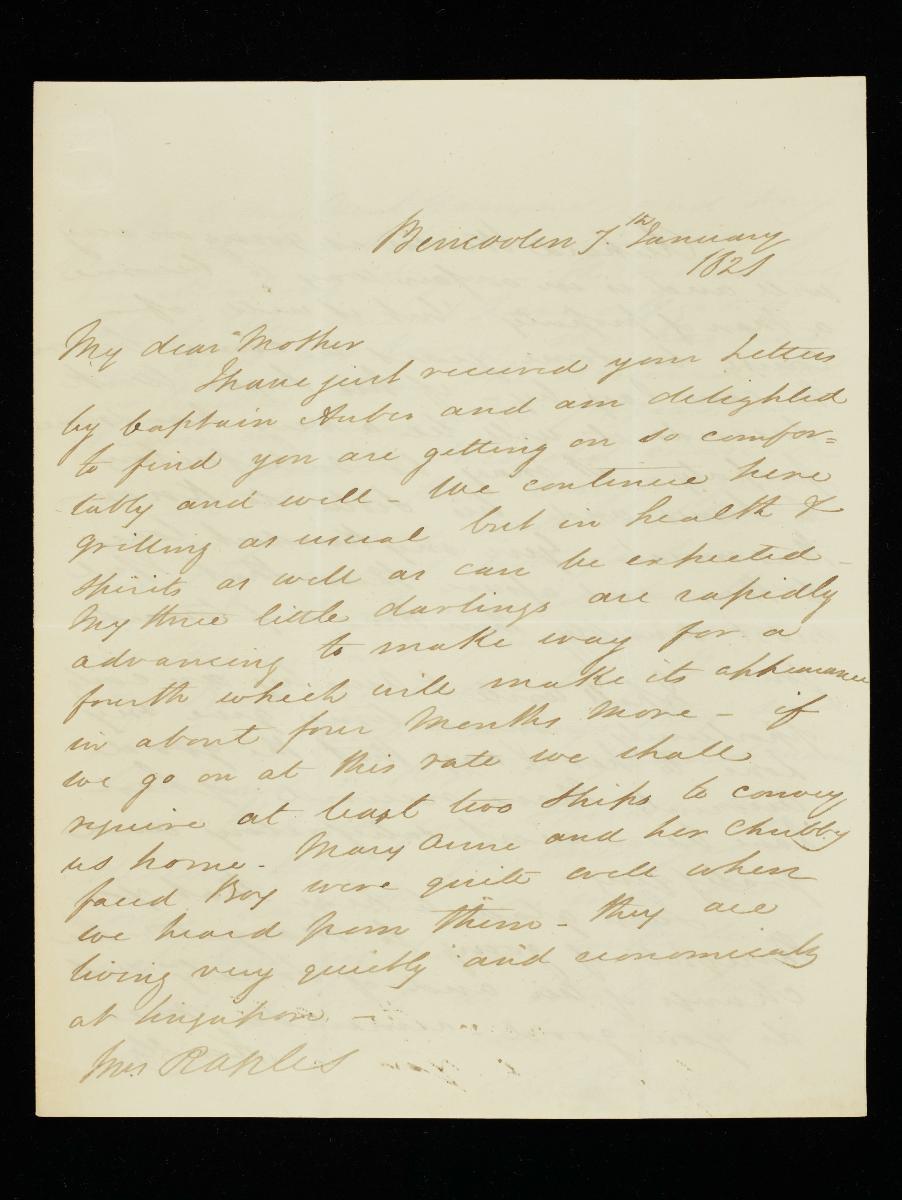 Bencoolen 7.th January
1821
My dear Mother
I have just received your Letters
by Captain Auber and am delighted
to find you are getting on so comfor=
tably and well - We continue here
grilling as usual but in health &
spirits as well as can be expected -
My three little darlings are rapidly
advancing to make way for a
fourth which will make its appearance
in about four Months more - if
we go on at this rate we shall
require at least two Ships to convey
us home - Mary Anne and her Chubby
faced Boy were quite well when
we heard from them - they are
living very quietly and economically
at Singapore -
Mrs Raffles